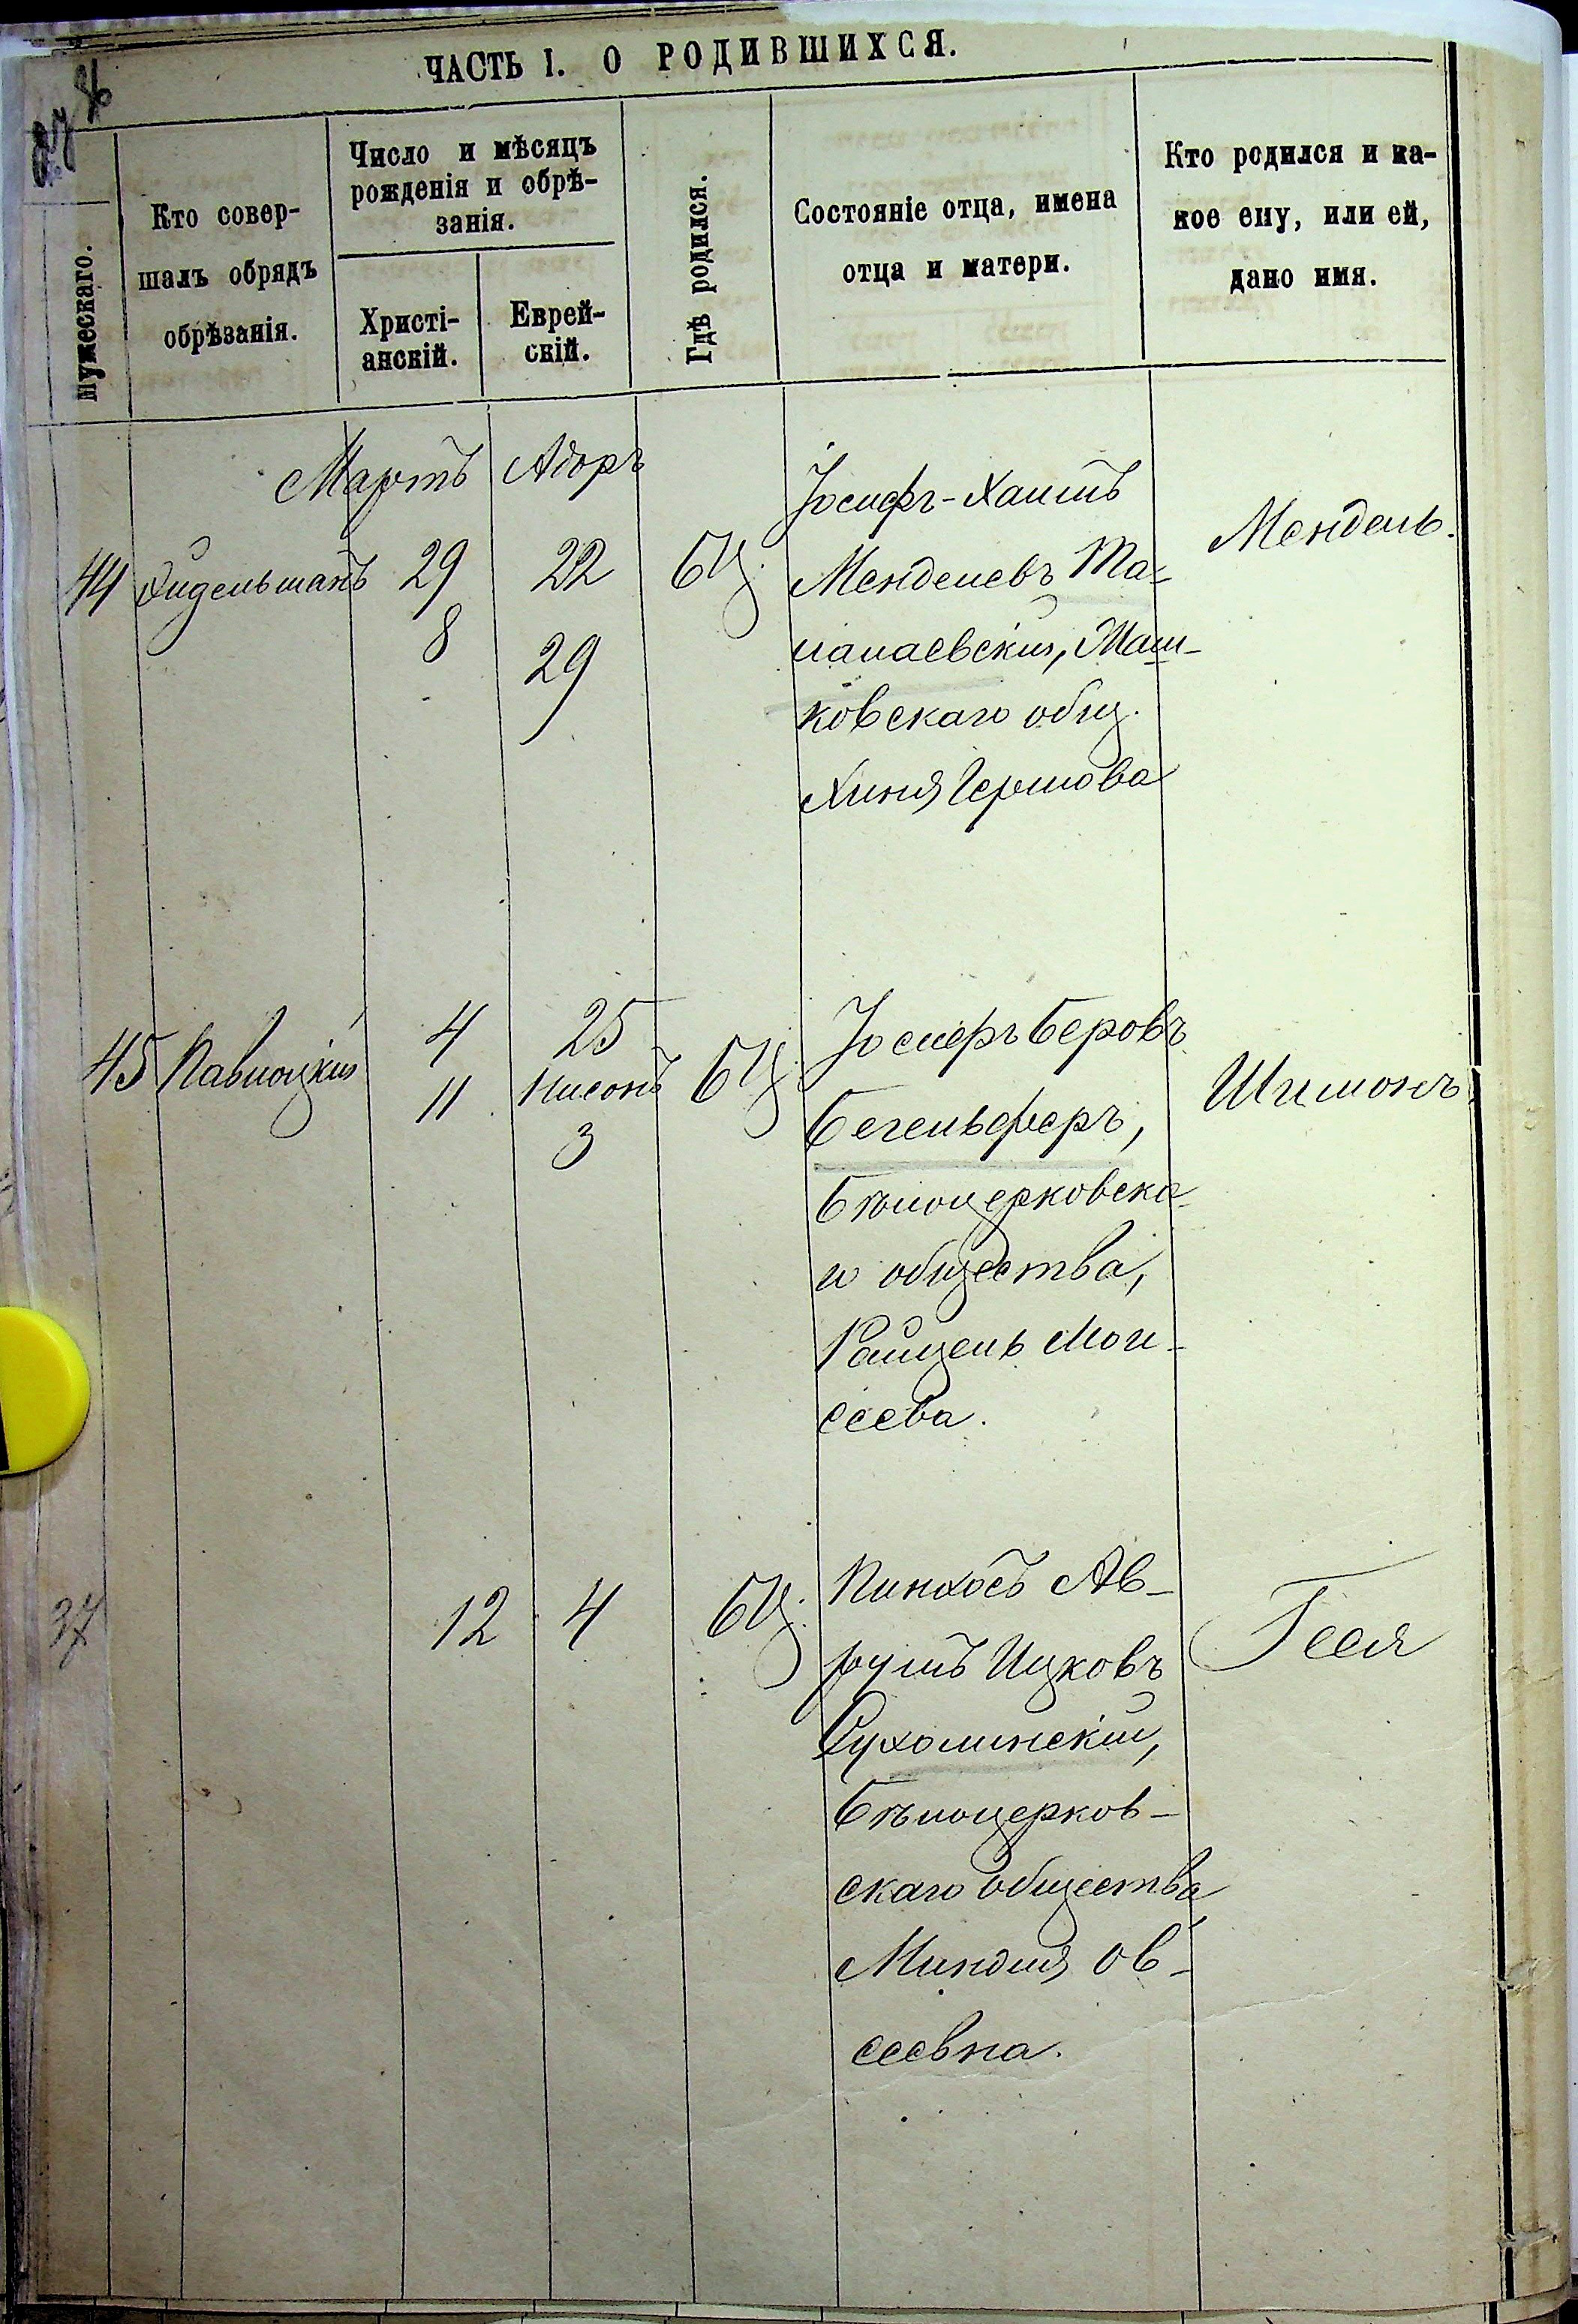 ЧАСТЬ I. О РОДИВШИХСЯ.
Мужескаго.
Кто совер-
шалъ обрядъ
обрѣзанія.
Число и мѣсяцъ
рожденія и обрѣ-
занія.
Христі-
анскій.
Еврей-
скій.
Гдѣ родился.
Состояніе отца, имена
отца и матери.
Кто родился и ка-
кое ему, или ей,
дано имя.
Мартъ Адоръ
44 Фидельманъ 29 22 БЦ.
8 29
Іосифъ-Хаимъ
Менделевъ Та-
лалаевскій, Маш-
ковскаго общ.
Хиня Гершова
Мендель.
45 Павлоцкій 4 25 БЦ.
11 Нисонъ
3
Іосифъ Беровъ
Бегельферъ,
Бѣлоцерковска-
го общества,
Райцель Мои-
сеева.
Шимонъ
37 12 4 БЦ.
Пинхосъ Ав-
румъ Ицковъ
Сухолинскій,
Бѣлоцерков-
скаго общества,
Миндля Ов-
сеевна.
Геся